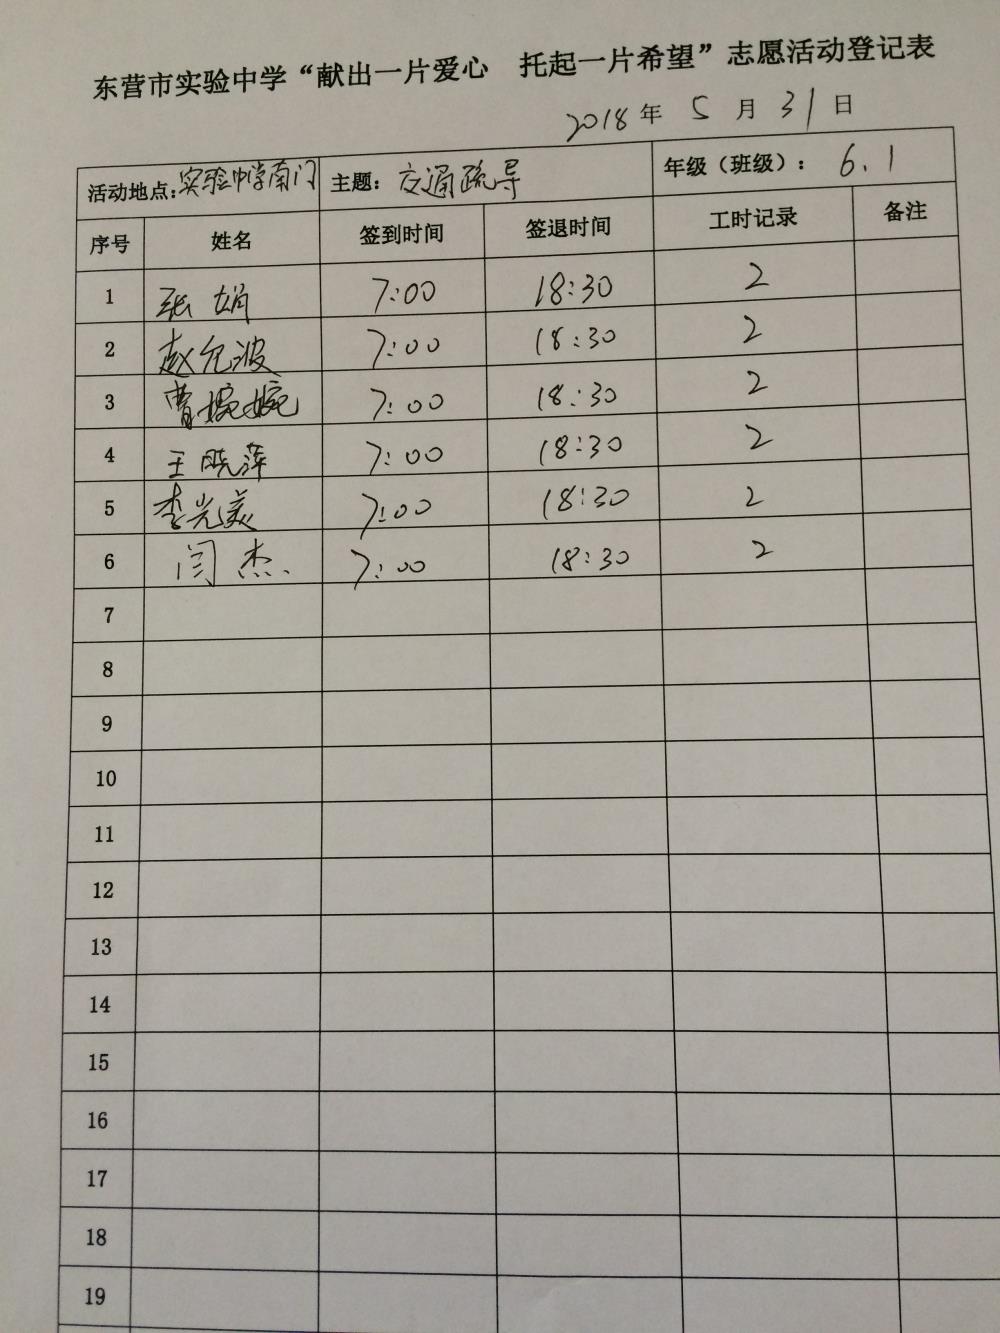 东营市实验中学“献出一片爱心 托起一片希望”志愿活动登记表
2018年 5 月 31 日
活动地点:实验中学南门 主题: 交通疏导 年级(班级): 6.1
序号 姓名 签到时间 签退时间 工时记录 备注
1 张娟 7:00 18:30 2
2 赵允波 7:00 18:30 2
3 曹婉婉 7:00 18:30 2
4 王晓萍 7:00 18:30 2
5 李光美 7:00 18:30 2
6 闫杰 7:00 18:30 2
7
8
9
10
11
12
13
14
15
16
17
18
19